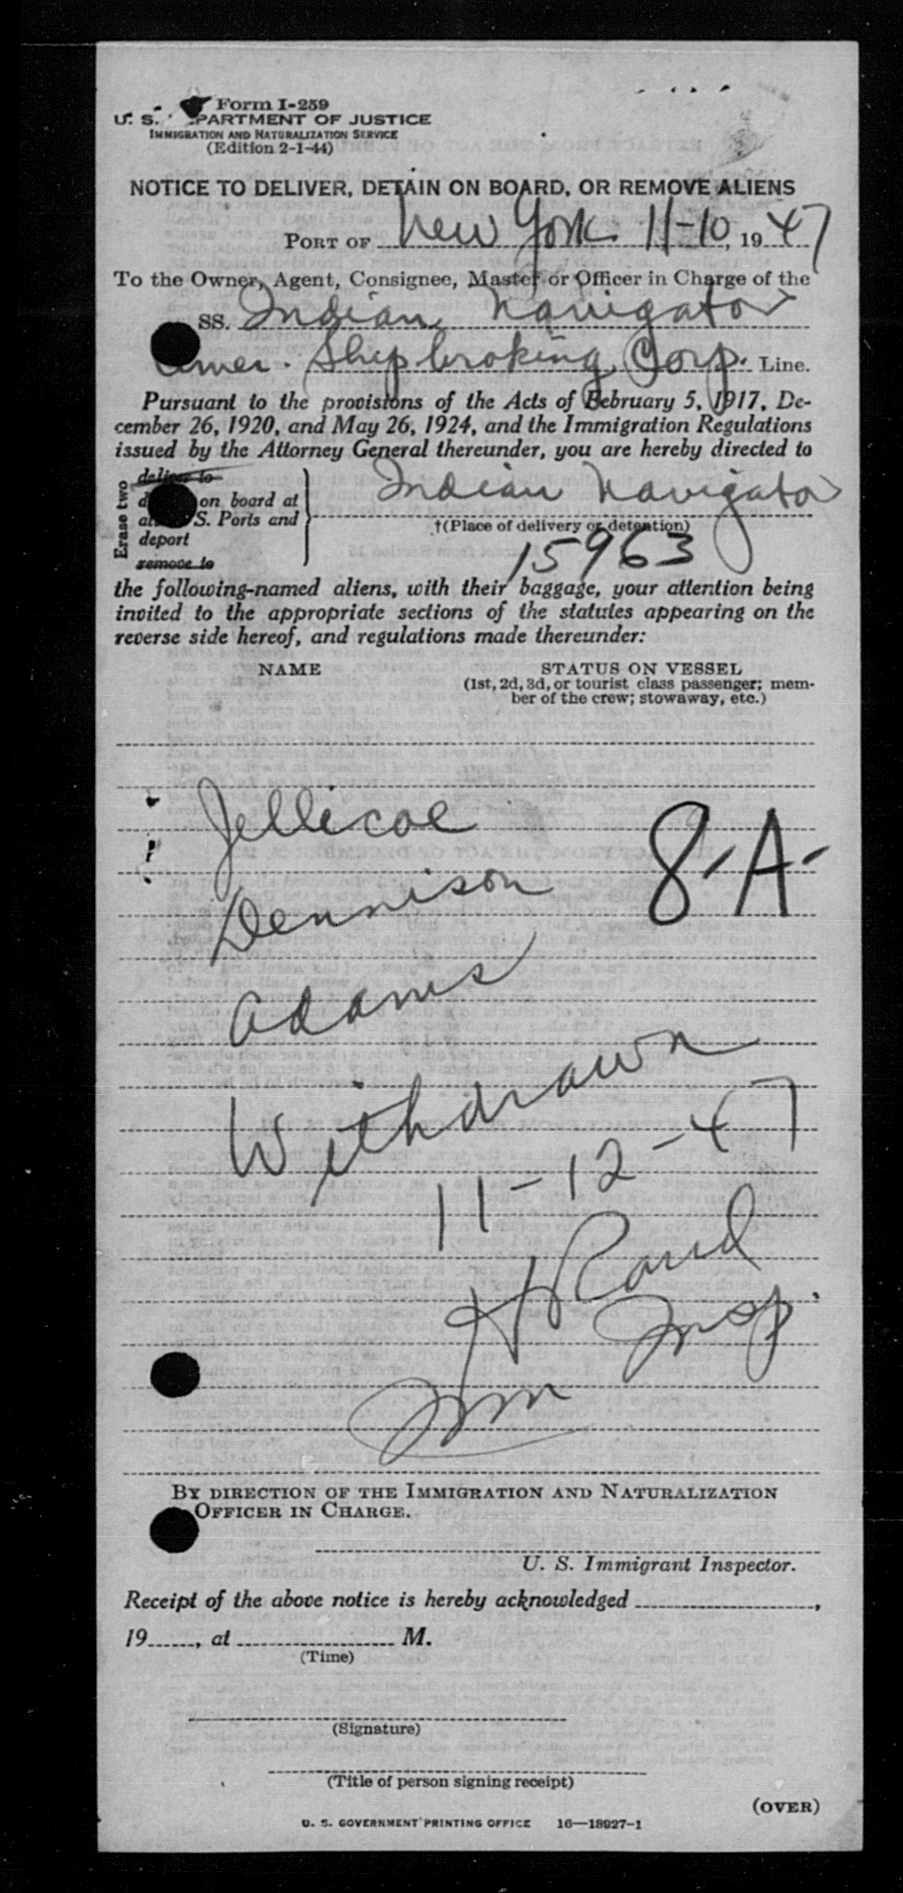 Form I-259
U. S. DEPARTMENT OF JUSTICE
IMMIGRATION AND NATURALIZATION SERVICE
(Edition 2-1-44)
NOTICE TO DELIVER, DETAIN ON BOARD, OR REMOVE ALIENS
PORT OF New York 11-10, 1947
To the Owner, Agent, Consignee, Master or Officer in Charge of the
SS. Indian Navigator
Amer. Shipbroking Corp. Line.
Pursuant to the provisions of the Acts of February 5, 1917, De-
cember 26, 1920, and May 26, 1924, and the Immigration Regulations
issued by the Attorney General thereunder, you are hereby directed to
Erase two
deliver to
on board at Indian Navigator
S. Ports and
†(Place of delivery or detention)
deport
15963
remove to
the following-named aliens, with their baggage, your attention being
invited to the appropriate sections of the statutes appearing on the
reverse side hereof, and regulations made thereunder:
NAME STATUS ON VESSEL
(1st, 2d, 3d, or tourist class passenger; mem-
ber of the crew; stowaway, etc.)
Jellicoe
Dennison 8-A-
Adams
Withdrawn
11-12-47
H Rand
Insp.
Imm
BY DIRECTION OF THE IMMIGRATION AND NATURALIZATION
OFFICER IN CHARGE.
U. S. Immigrant Inspector.
Receipt of the above notice is hereby acknowledged ,
19 , at M.
(Time)
(Signature)
(Title of person signing receipt)
(OVER)
U. S. GOVERNMENT PRINTING OFFICE 16—18927-1